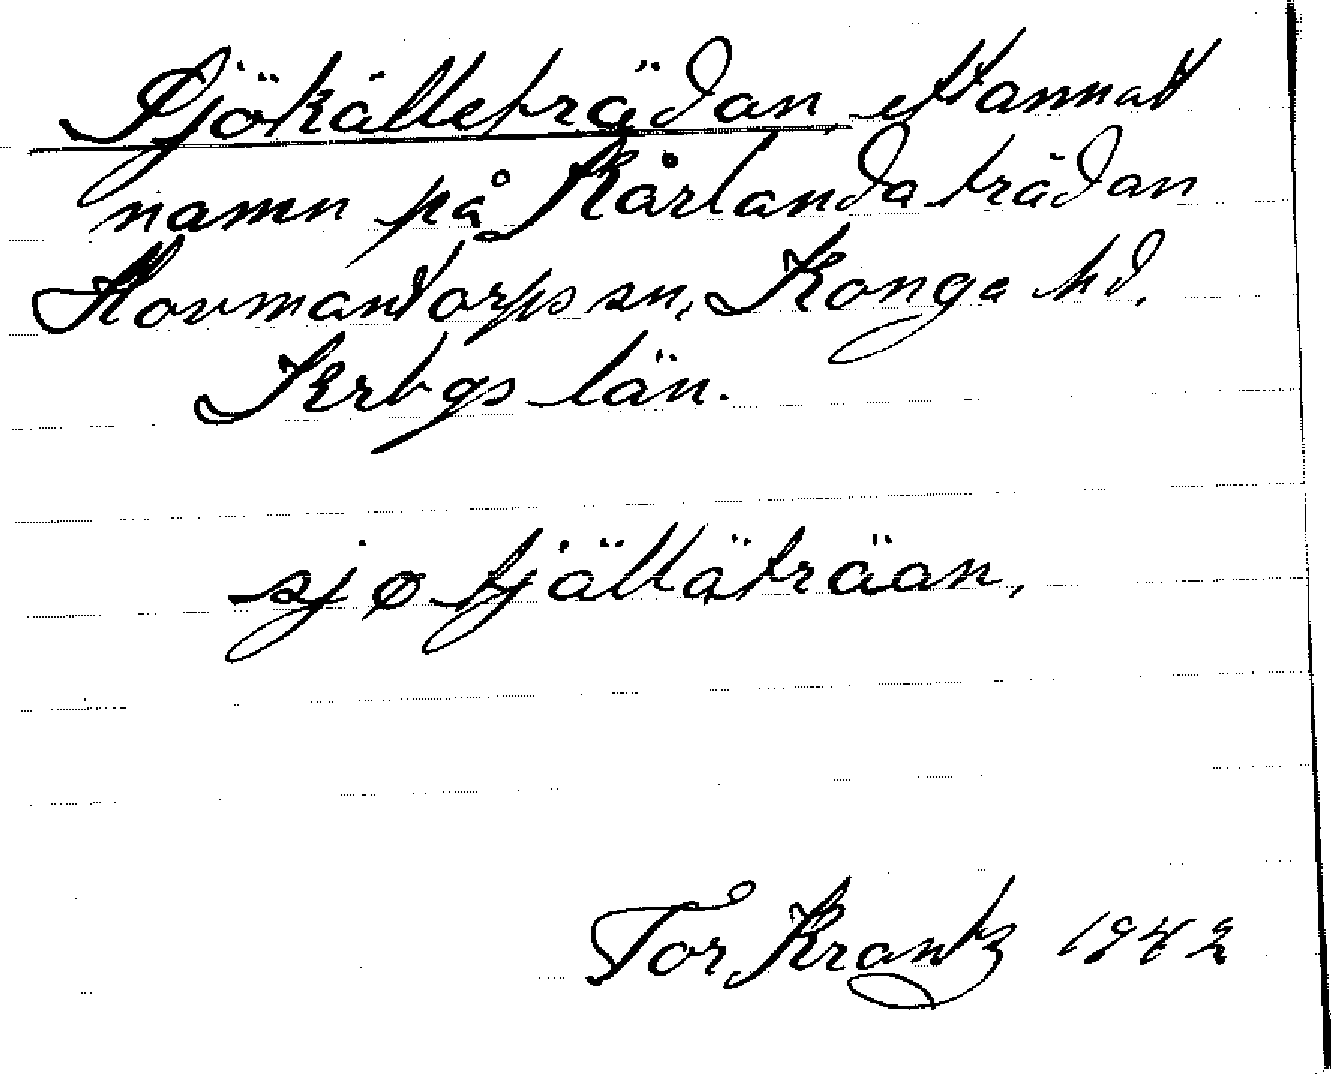 Sjökälleträdan, ett annat
namn på Kårlandaträdan
Hovmantorps sn, Konga hd.
Krbgs län.
sjøtjällätrāan,
Tor Krantz 1942